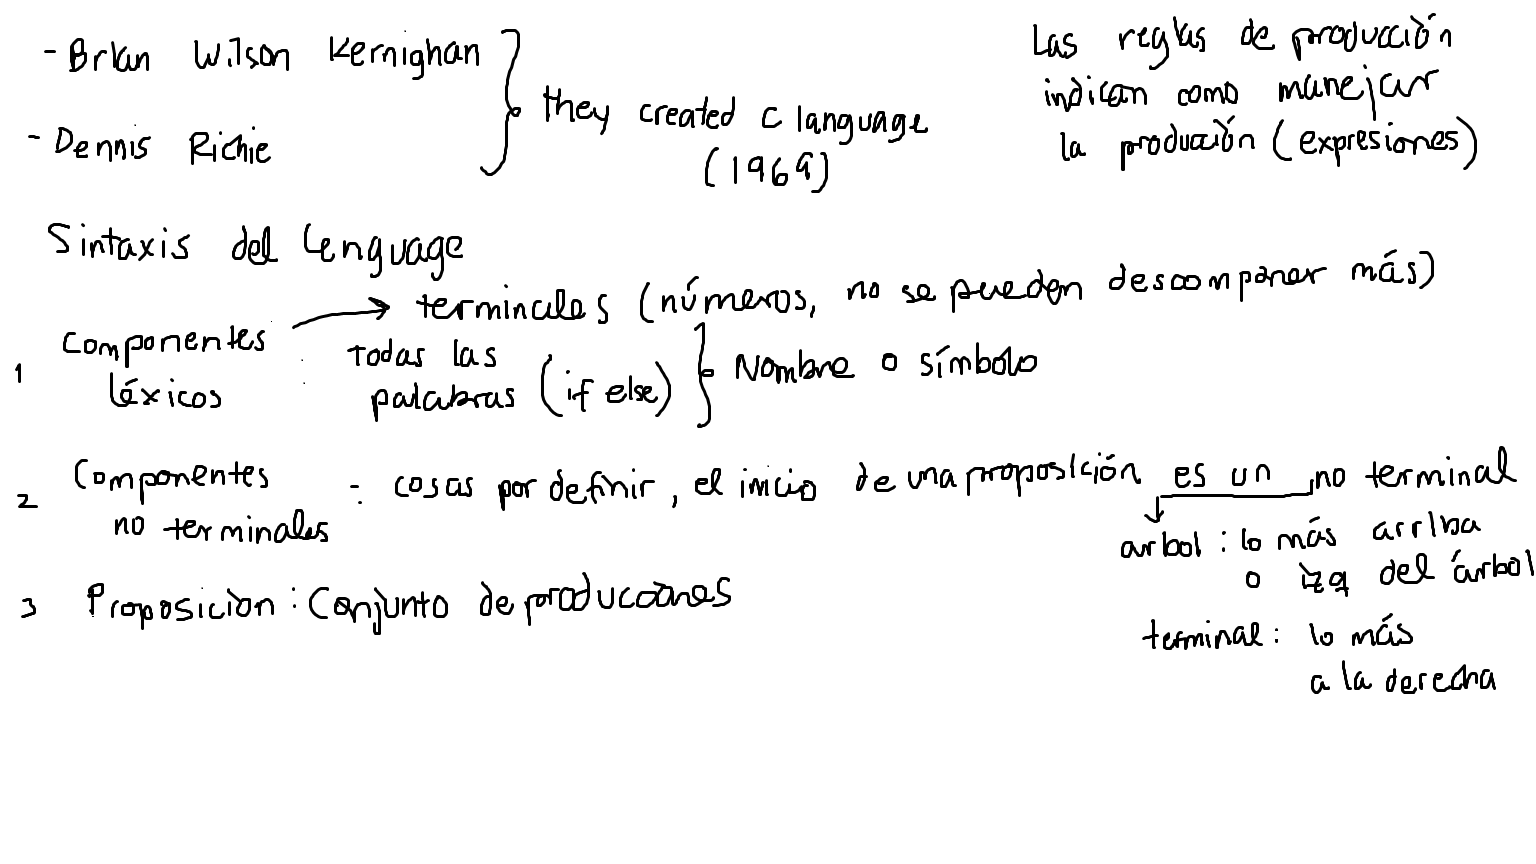 - Brian Wilson Kernighan
- Dennis Richie
they created C language
(1969)
Las reglas de producción
indican como manejar
la producción (expresiones)
Sintaxis del lenguage
1 Componentes léxicos
→ terminales (números, no se pueden descomponer más)
todas las
palabras (if else)
Nombre o símbolo
2 Componentes
no terminales
- cosas por definir, el inicio de una proposición es un no terminal
arbol: lo más arriba
o izq del árbol
terminal: lo más
a la derecha
3 Proposicion: Conjunto de producciones